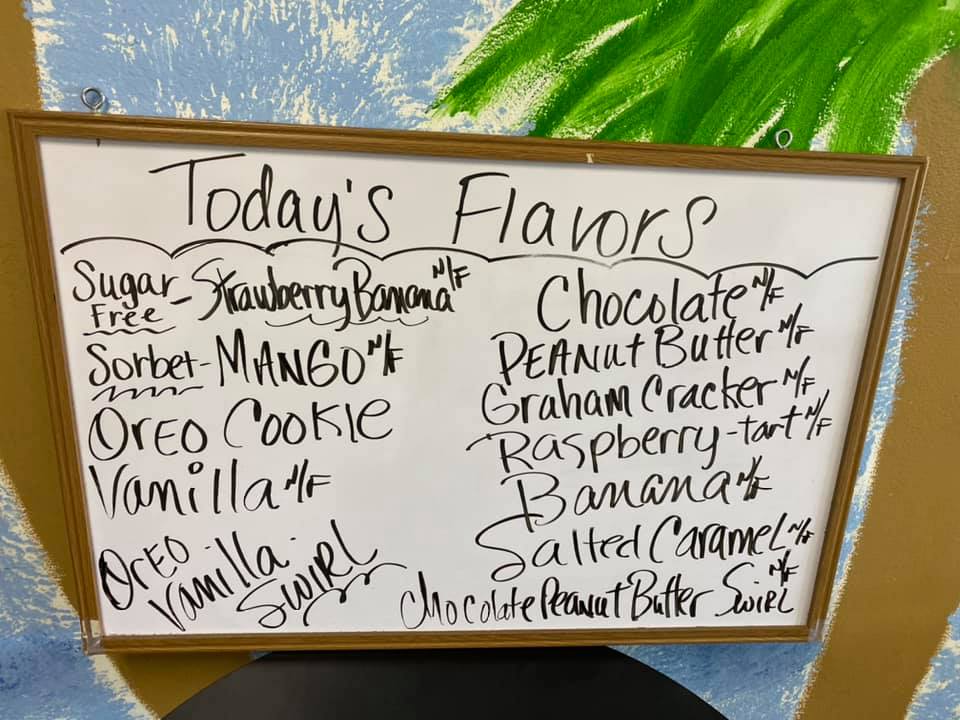 Today's Flavors
Sugar Free - Strawberry Banana N/F
Sorbet - MANGO N/F
OREO COOKIE
Vanilla N/F
OREO
Vanilla
SWIRL
Chocolate N/F
PEANut Butter N/F
Graham Cracker N/F
Raspberry-tart N/F
Banana N/F
Salted CarameL N/F
Chocolate Peanut Butter SwiRL N/F